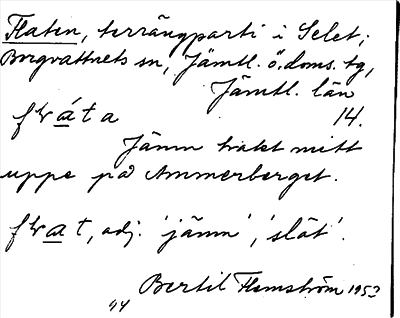 Flaten, terrängparti i Selet;
Borgvattnets sn, Jämtl. ö. doms. tg,
Jämtl. län
14.
Jämn trakt mitt
uppe på Ammerberget.
adj. 'jämn', 'slät'.
Bertil Flemström 1953